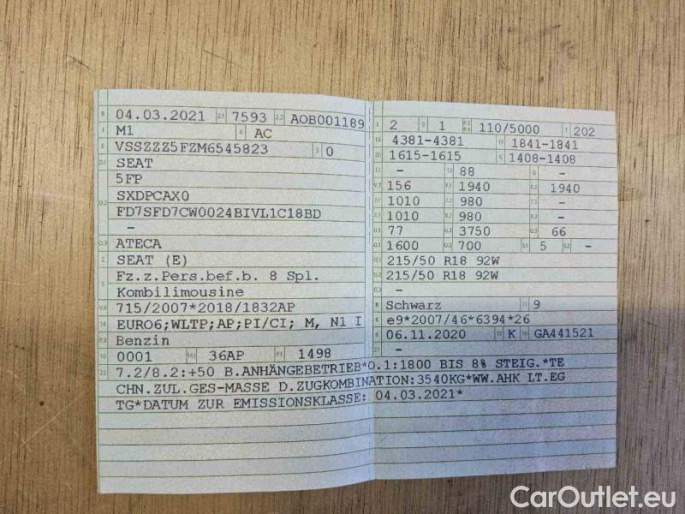 04.03.2021 7593 AOB001189
M1 AC
VSSZZZ5FZM6545823 0
SEAT
5FP
SXDPCAX0
FD7SFD7CW0024BIVL1C18BD
-
ATECA
SEAT (E)
Fz.z.Pers.bef.b. 8 Spl.
Kombilimousine
715/2007*2018/1832AP
EURO6;WLTP;AP;PI/CI; M, N1 I
Benzin
0001 36AP 1498
7.2/8.2:+50 B.ANHÄNGEBETRIEB*O.1:1800 BIS 8% STEIG.*TE
CHN.ZUL.GES-MASSE D.ZUGKOMBINATION:3540KG*WW.AHK LT.EG
TG*DATUM ZUR EMISSIONSKLASSE: 04.03.2021*
2 1 110/5000 202
4381-4381 1841-1841
1615-1615 1408-1408
- 88 -
156 1940 1940
1010 980 -
1010 980 -
77 3750 66
1600 700 5 -
215/50 R18 92W
215/50 R18 92W
-
Schwarz 9
e9*2007/46*6394*26
06.11.2020 K GA441521
-
CarOutlet.eu